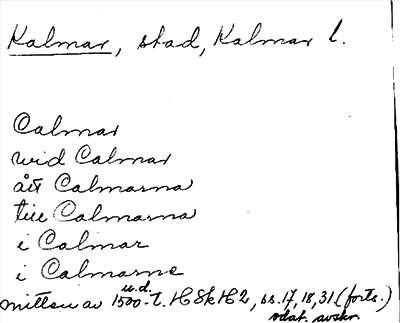 Kalmar, stad, Kalmar l.
Calmar
wid Calmar
ått Calmarna
till Calmarna
i Calmar
i Calmarne
u.d.
mitten av 1500-t. HSkH2, ss. 17, 18, 31 (forts.)
odat. avskr.